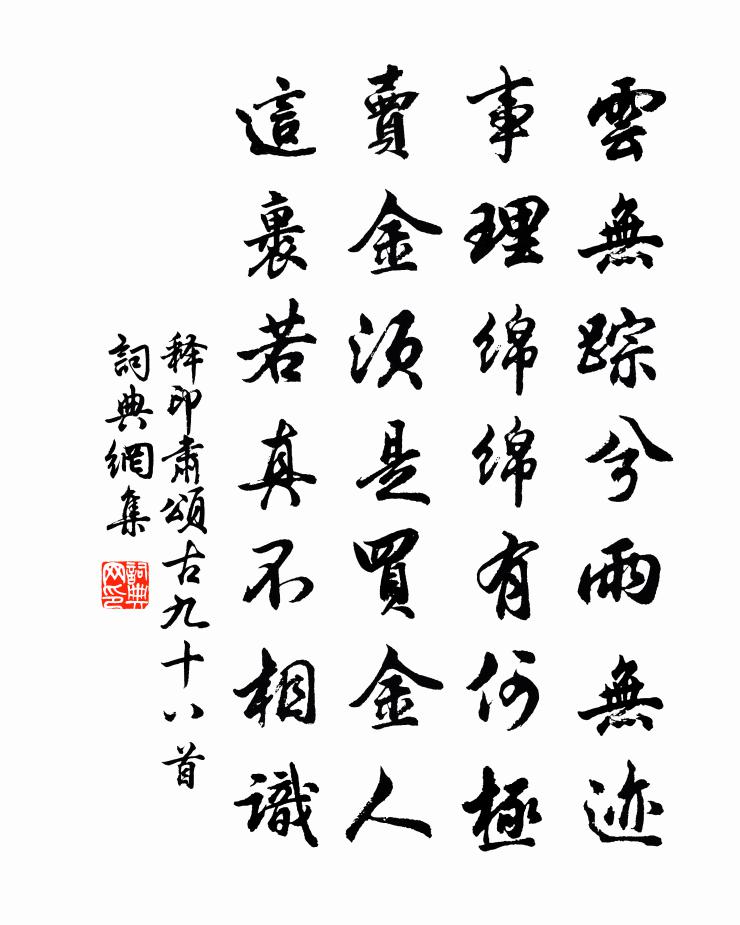 雲無踪兮雨無迹
事理綿綿有何極
賣金須是買金人
這裏若真不相識
释印肅頌古九十八首
詞典網集
詞典
网印